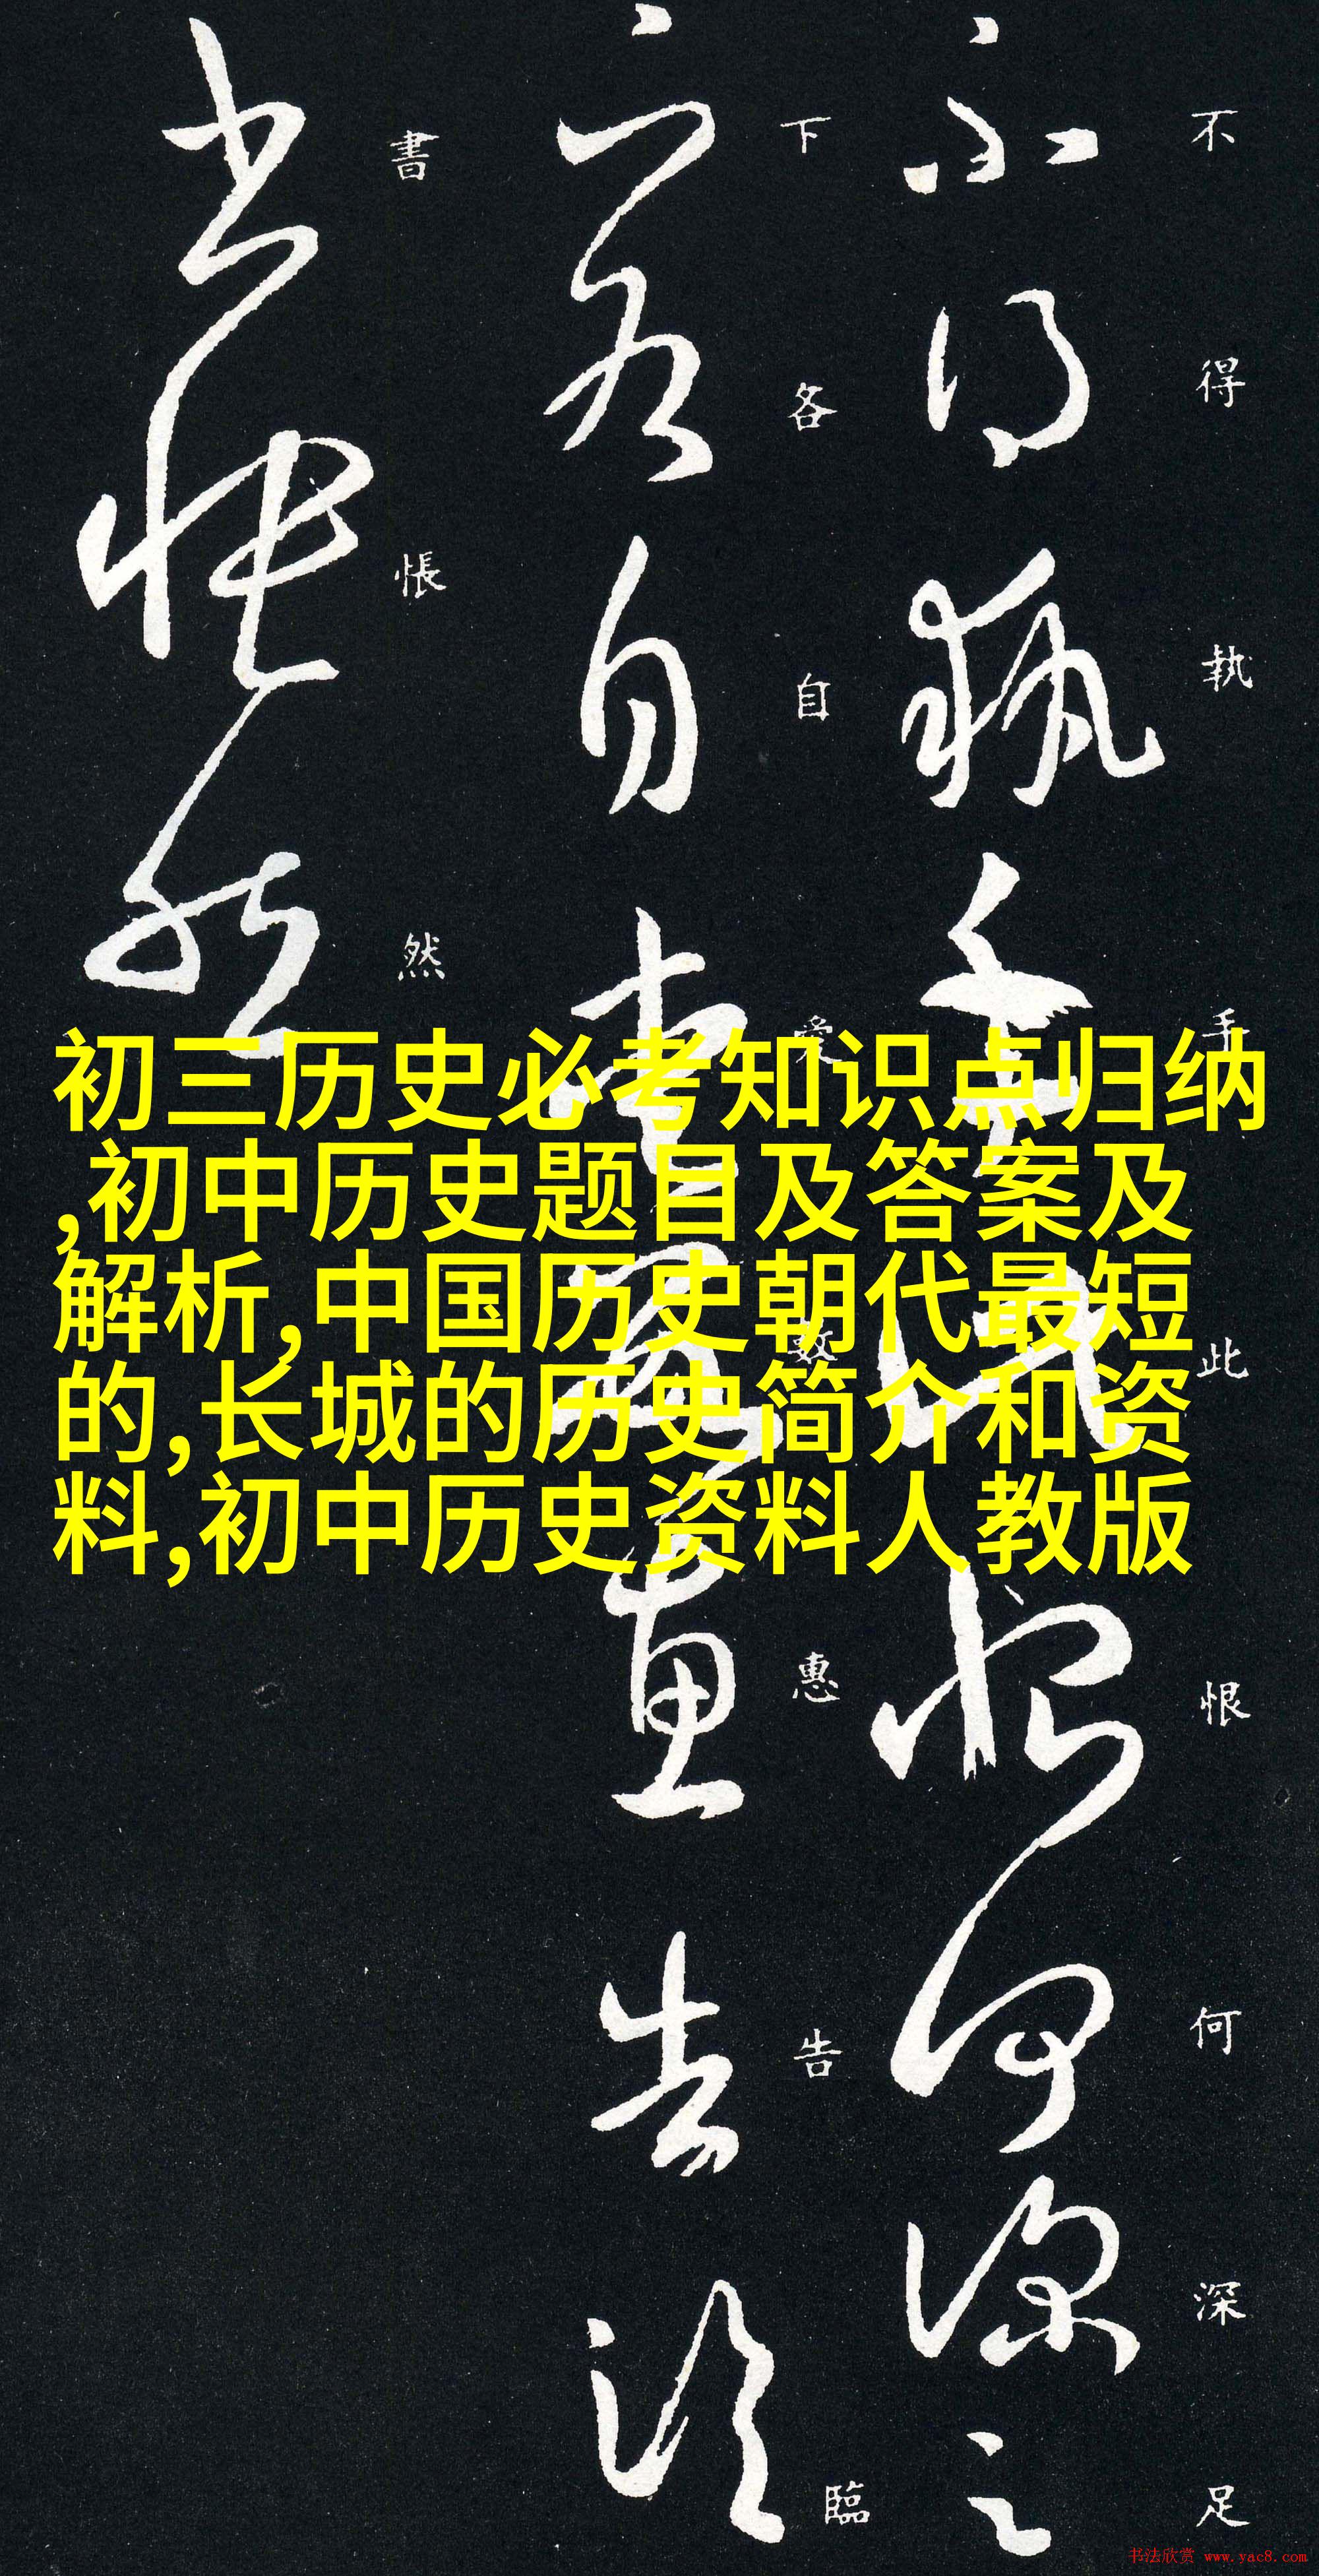 不得執手此恨何深足
下各自愛數惠告臨
書悵然
初三历史必考知识点归纳
,初中历史题目及答案及
解析,中国历史朝代最短
的,长城的历史简介和资
料,初中历史资料人教版
书法欣赏 www.yac8.com